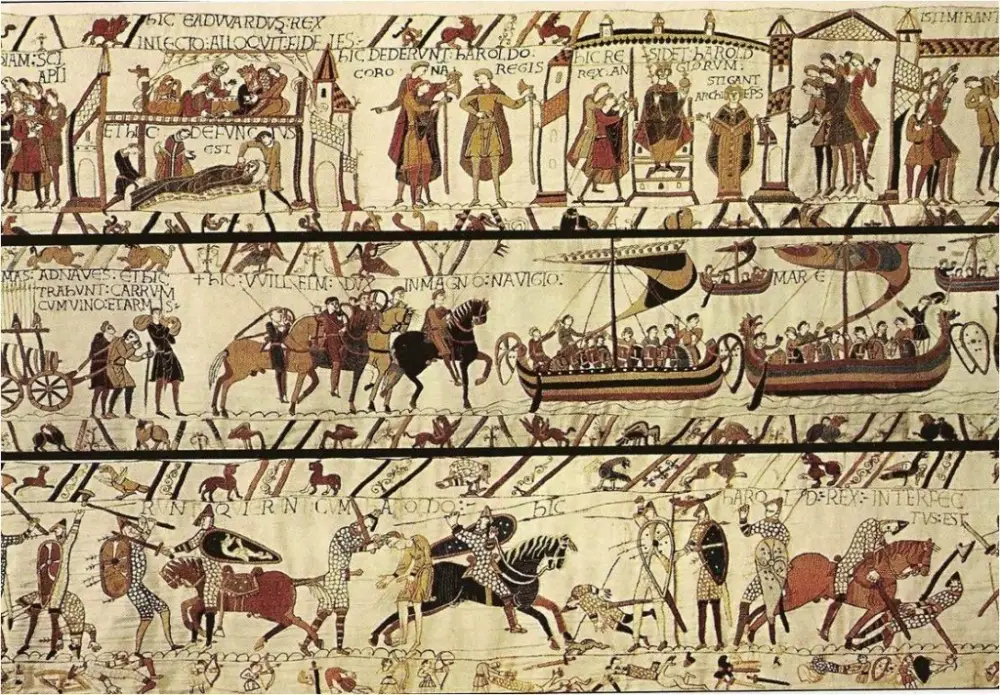 IAM: SCI
APLI
hIC EADVVARDVS: REX
IN LECTO: ALLOQVIT: FIDE LES:
ET hIC DEFVNCTVS
EST
hIC DEDERVNT: hAROLDO:
CORO NA REGIS
hIC RE SIDET: hAROLD
REX: AN ORVM:
STIGANT
ARChIEPS
ISTI MIRANT
MAS: AD NAVES: ET hIC
TRAhVNT: CARRVM
CVM VINO: ET ARMIS:
+ hIC: VVILLELM: DVX IN MAGNO: NAVIGIO:
MARE
RVNT QVI ERANT CVM hAROLDO: hIC hAROLD: REX: INTERFEC
TVS: EST